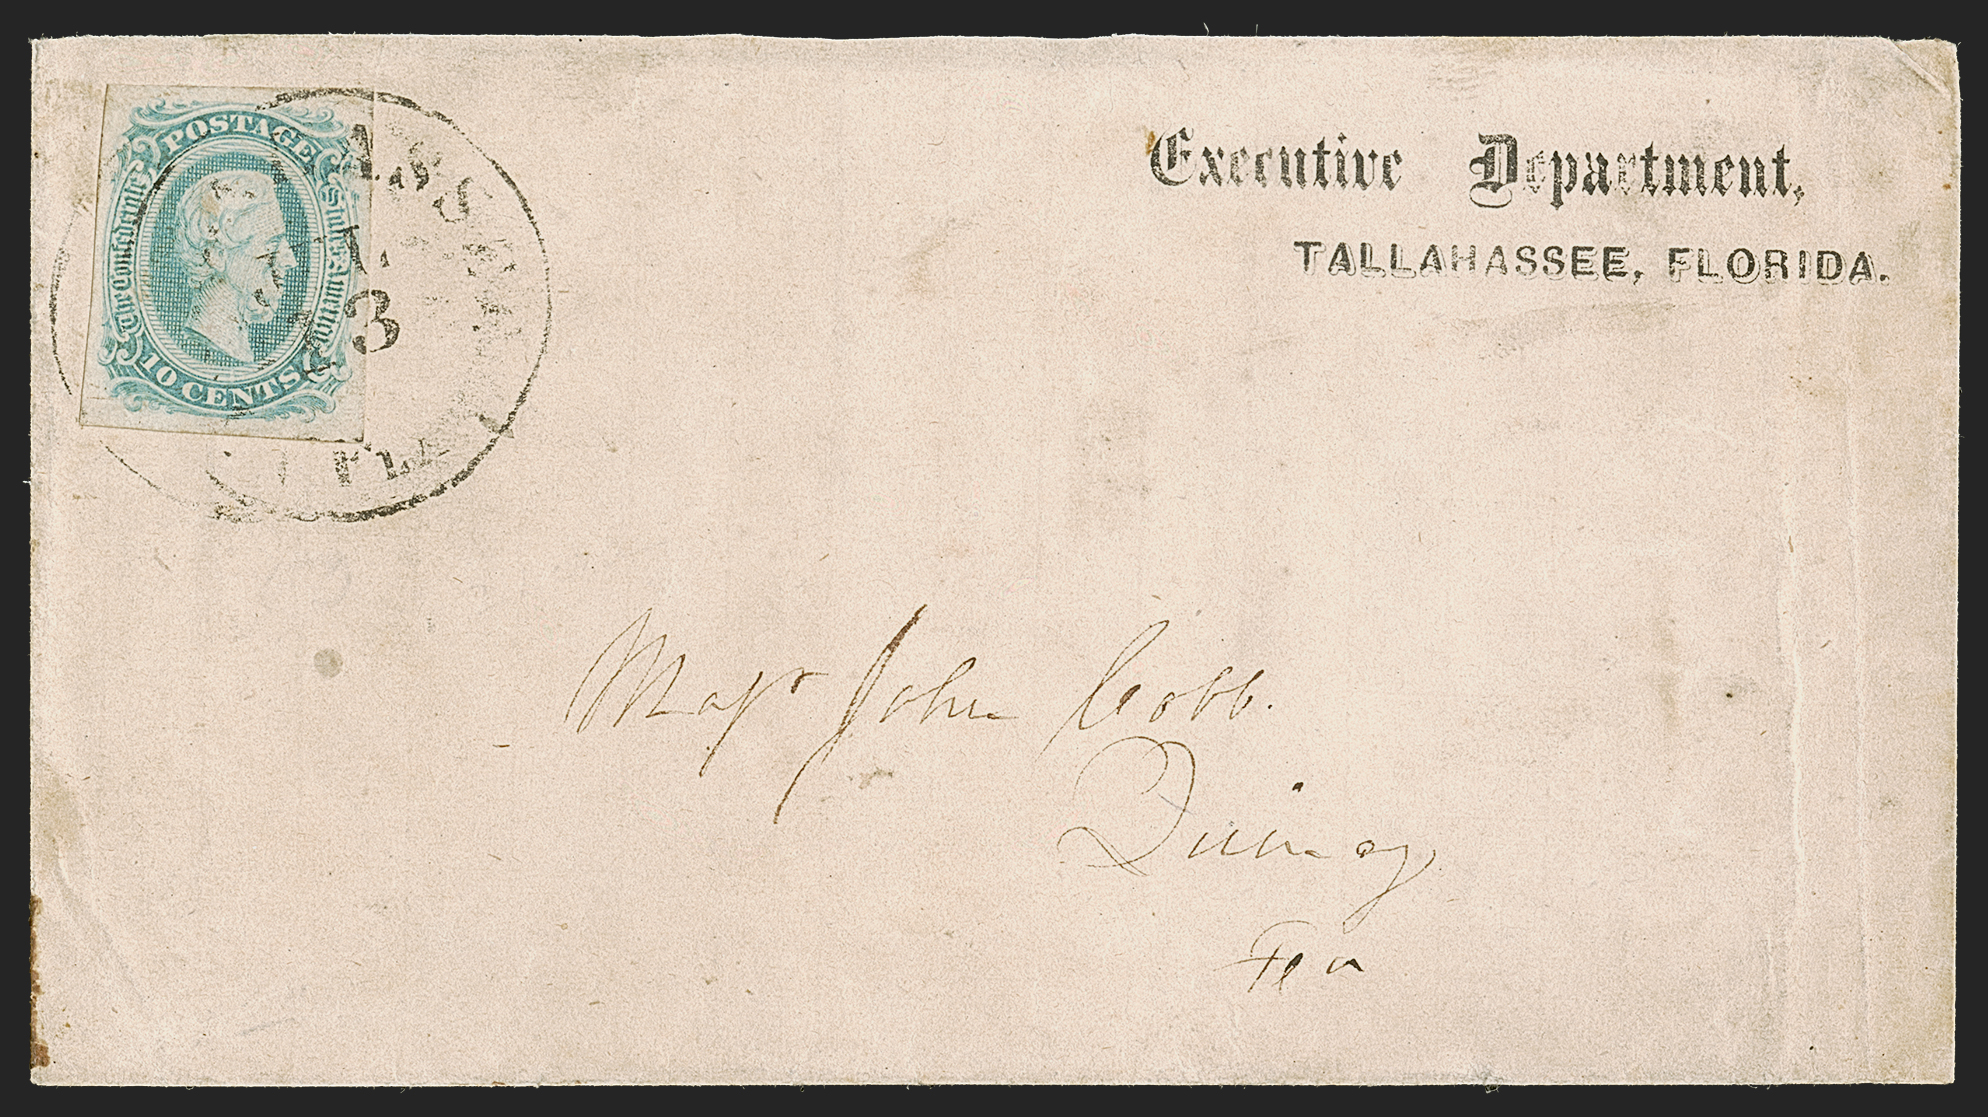 Executive Department,
TALLAHASSEE, FLORIDA.
POSTAGE
The Confederate States of America
10 CENTS
3
FLA
Majr John Cobb.
Quincy,
Fla